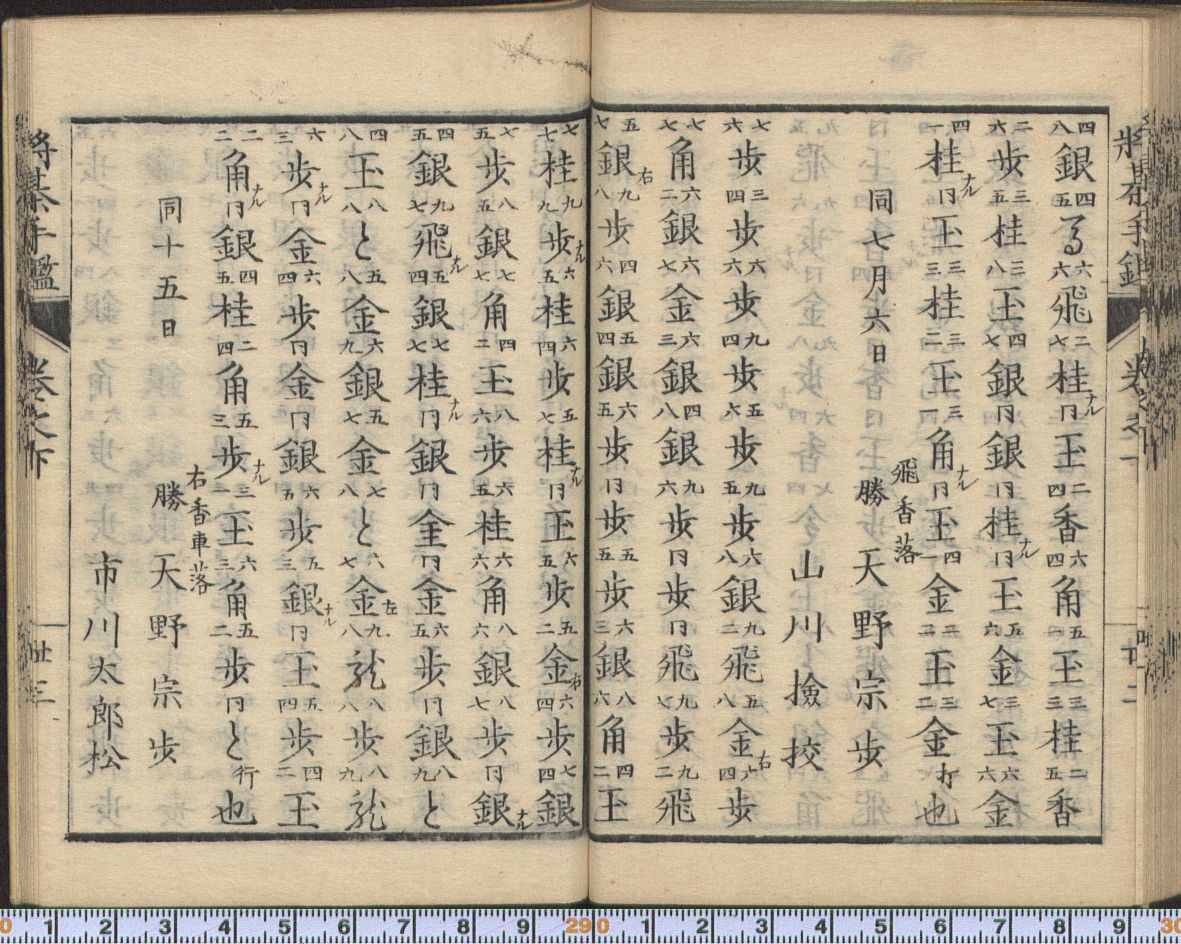 四八銀四五る六六飛二七桂ナル同玉二四香六四角五五玉三三桂二五香
二六歩三五桂三八玉四七銀同銀同桂ナル同玉五六金三七玉六六金
四一桂ナル同玉三三桂三二玉三一角ナル同玉四二金三三玉三二金打也
同七月六日 飛香落 勝 天野宗歩
山川撿挍
七六歩三四歩六六歩九四歩五六歩九五歩六八銀九二飛五八金右六四歩
七七角六二銀六七金六三銀四八銀九六歩同歩同飛九七歩九二飛
五七銀右九八歩四六銀五四銀六五歩同歩五五歩六三銀八六角四二玉
七七桂九九歩ナル六五桂六四歩五七桂ナル同玉六五歩五二金右六四歩七四銀
七五歩八五銀七七角四二玉八六歩六五桂六六角八六銀八七歩同銀ナル
四五銀九七飛ナル五四銀七七桂ナル同銀同金同金六五歩同銀八九と
四八玉八八と五八金六九銀五七金七八と六七金左九八龍八八歩八九龍
六三歩ナル同金六四歩同金同銀六五歩五三銀ナル同玉五四歩四二玉
二二角ナル同銀四五桂二四角五三歩ナル三三玉六三角五二歩同と行也
同十五日 右香車落 勝 天野宗歩
市川太郎松
将棊手鑑 巻之下 丗三